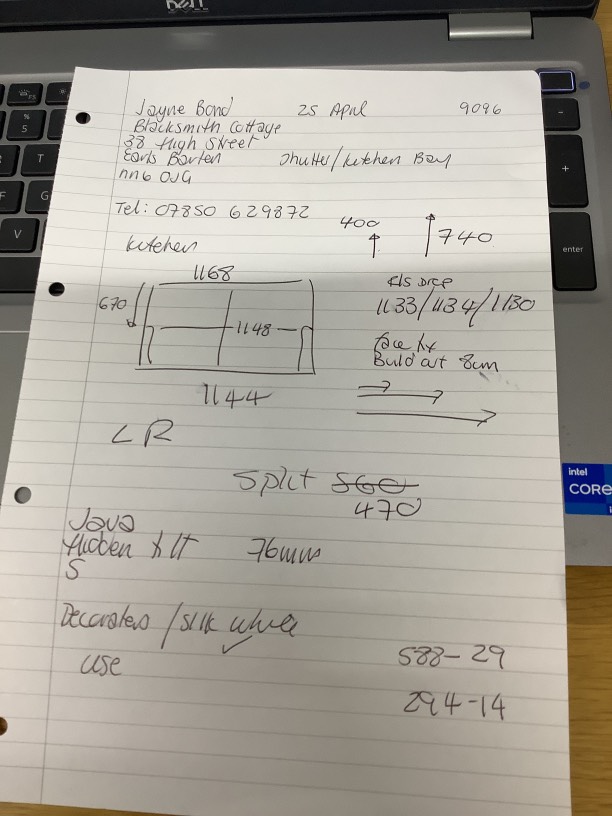 DELL
Jayne Bond 25 April 9096
Blacksmith Cottage
38 High Street
Earls Barton Shutter/Kitchen Bay
NN6 0JG
Tel: 07850 629872
400 740
Kitchen
1168
670
1148
1144
1133/1134/1130
face fix
Build out 8cm
L R
Split 560
470
Java
Hidden tilt 76mm
S
Decorators / silk white
use
588-29
294-14
intel
CORE
%
5
T
F
G
V
-
+
enter